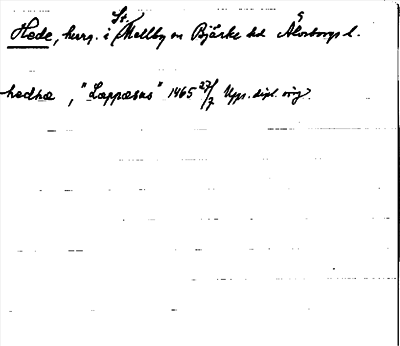 Hede, herrg. i St. Mellby sn Bjärke hd Älvsborgs l.
hedhæ, "Læppæsas" 1465 27/7 Upps. dipl. orig.